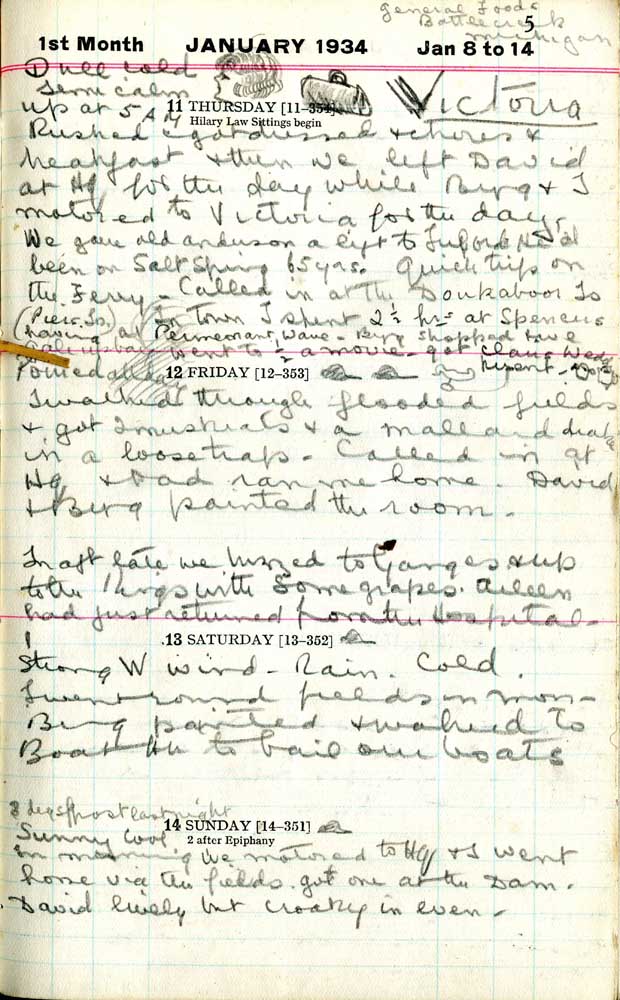 General Foods
Battlecreek
Michigan
5
1st Month JANUARY 1934 Jan 8 to 14
Dull cold
Semi calm
11 THURSDAY [11-354]
Hilary Law Sittings begin
Victoria
up at 5 AM
Rushed got dressed + chores +
breakfast + then we left David
at Hq for the day while Berg + I
motored to Victoria for the day.
We gave old anderson a lift to Fulford He'd
been on Salt Spring 65 yrs. Quick trips on
the Ferry - Called in at the Doukaboor Is
(Piers Is.) In Town I spent 2½ hrs at Spencers
having a Permenant Wave - Berg shopped + we
went to ½ a movie - got Claus Wed
present -
12 FRIDAY [12-353]
I walked through flooded fields
+ got 2 muskrats + a mallard drake
in a loose trap - Called in at
Hq + Dad ran me home. David
+ Berg painted the room -
In aft late we whizzed to Ganges + up
to the Kings with some grapes. Aileen
had just returned from the Hospital -
13 SATURDAY [13-352]
Strong W wind - Rain. Cold.
I went round fields in morn -
Berg painted + walked to
Boat Hu to bail our boats
8 degs frost last night
14 SUNDAY [14-351]
2 after Epiphany
Sunny cool
In morning we motored to Hq + I went
home via the fields. got one at the Dam.
David lively but croaky in even -